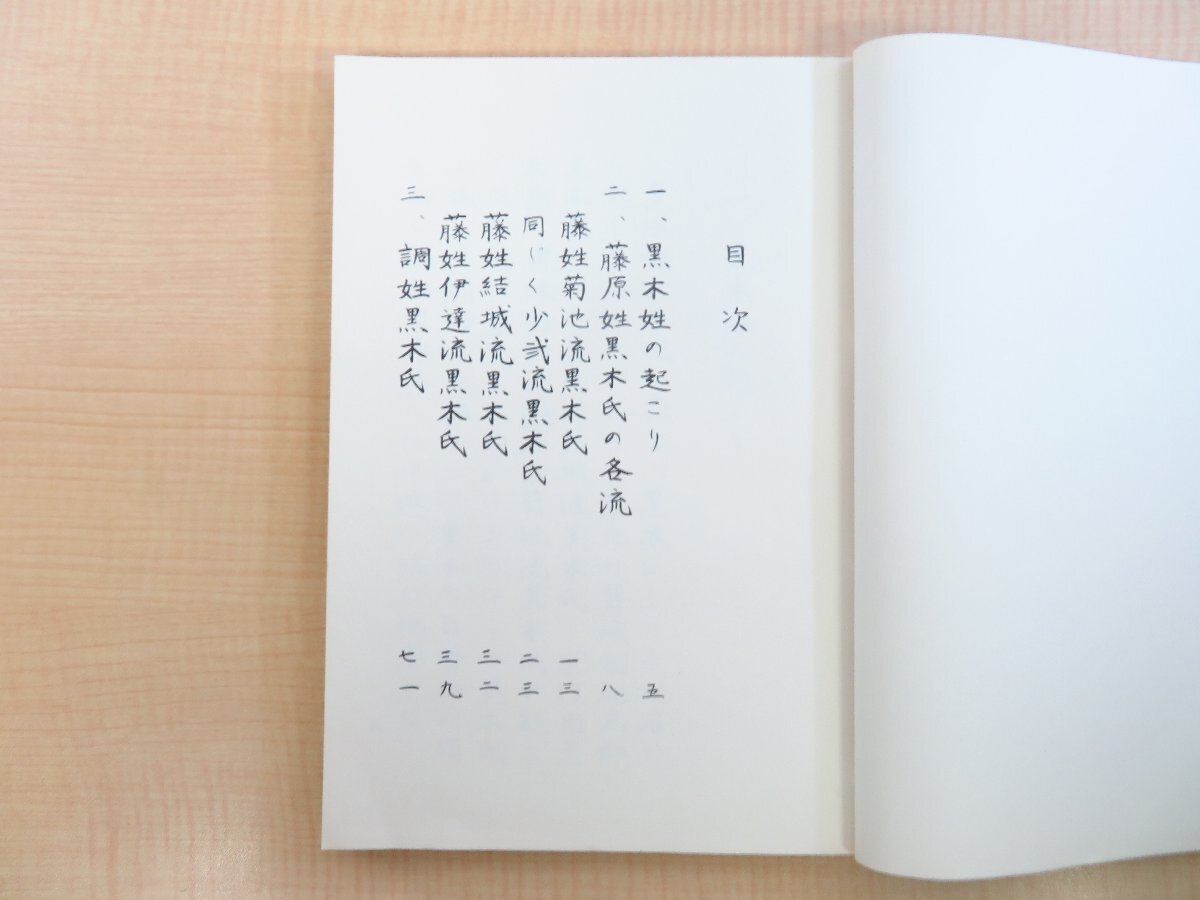 目次
一、黒木姓の起こり 五
二、藤原姓黒木氏の各流 八
藤姓菊池流黒木氏 一三
同じく少弐流黒木氏 二三
藤姓結城流黒木氏 三二
藤姓伊達流黒木氏 三九
三、調姓黒木氏 七一